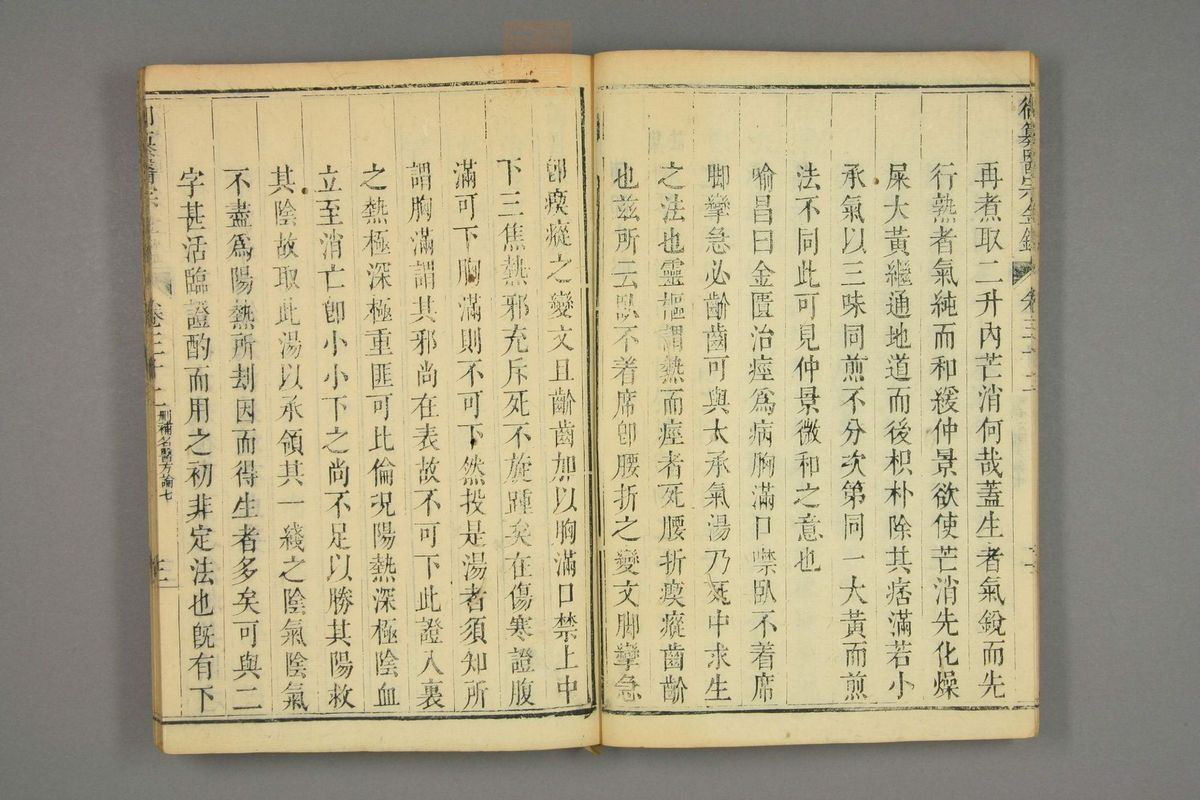 御纂醫宗金鑑 卷三十二
再煮取二升內芒消何哉蓋生者氣銳而先
行熟者氣純而和緩仲景欲使芒消先化燥
屎大黃繼通地道而後枳朴除其痞滿若小
承氣以三味同煎不分次第同一大黃而煎
法不同此可見仲景微和之意也
喻昌曰金匱治痙爲病胸滿口噤臥不着席
脚攣急必齘齒可與大承氣湯乃死中求生
之法也靈樞謂熱而痙者死腰折瘈瘲齒齘
也兹所云臥不着席卽腰折之變文脚攣急
卽瘈瘲之變文且齘齒加以胸滿口禁上中
下三焦熱邪充斥死不旋踵矣在傷寒證腹
滿可下胸滿則不可下然投是湯者須知所
謂胸滿謂其邪尚在表故不可下此證入裏
之熱極深極重匪可比倫況陽熱深極陰血
立至消亡卽小小下之尚不足以勝其陽救
其陰故取此湯以承領其一綫之陰氣陰氣
不盡爲陽熱所刦因而得生者多矣可與二
字甚活臨證酌而用之初非定法也旣有下
卷三十二 刪補名醫方論七